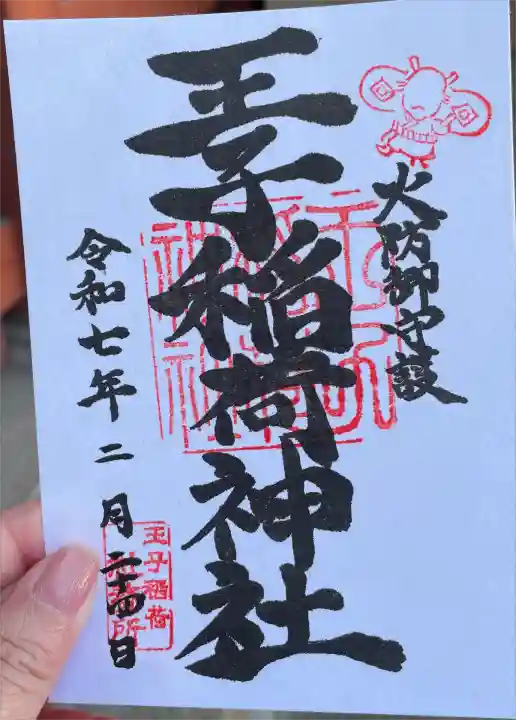 火防御守護
王子稲荷神社
令和七年二月二十四日
王子稲荷
社務所